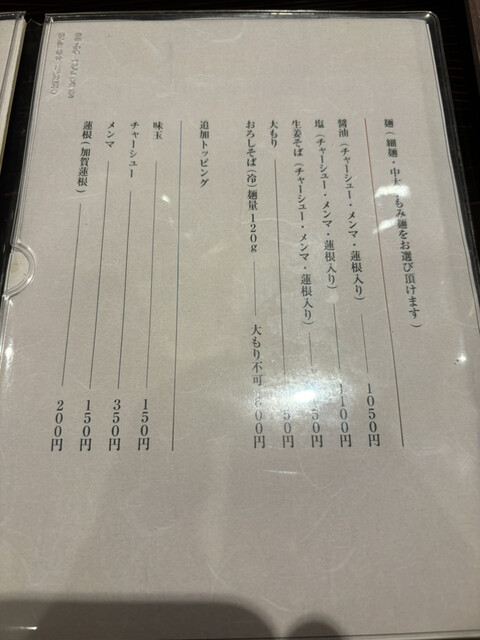 麺(細麺・中太・もみ麺をお選び頂けます)
醬油(チャーシュー・メンマ・蓮根入り) 1050円
塩(チャーシュー・メンマ・蓮根入り) 1100円
生姜そば(チャーシュー・メンマ・蓮根入り) 50円
大もり 50円
おろしそば(冷)麺量120g 大もり不可 00円
追加トッピング
味玉 150円
チャーシュー 350円
メンマ 150円
蓮根(加賀蓮根) 200円